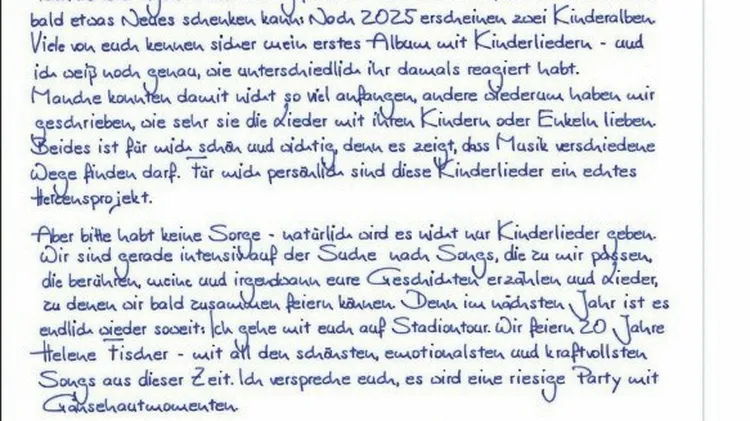 bald etwas Neues schenken kann: Noch 2025 erscheinen zwei Kinderalben.
Viele von euch kennen sicher mein erstes Album mit Kinderliedern - und
ich weiß noch genau, wie unterschiedlich ihr damals reagiert habt.
Manche konnten damit nicht so viel anfangen, andere wiederum haben mir
geschrieben, wie sehr sie die Lieder mit ihren Kindern oder Enkeln lieben.
Beides ist für mich schön und wichtig, denn es zeigt, dass Musik verschiedene
Wege finden darf. Für mich persönlich sind diese Kinderlieder ein echtes
Herzensprojekt.
Aber bitte habt keine Sorge - natürlich wird es nicht nur Kinderlieder geben.
Wir sind gerade intensiv auf der Suche nach Songs, die zu mir passen,
die berühren, meine und irgendwann eure Geschichten erzählen und Lieder,
zu denen wir bald zusammen feiern können. Denn im nächsten Jahr ist es
endlich wieder soweit: Ich gehe mit euch auf Stadiontour. Wir feiern 20 Jahre
Helene Fischer - mit all den schönsten, emotionalsten und kraftvollsten
Songs aus dieser Zeit. Ich verspreche euch, es wird eine riesige Party mit
Gänsehautmomenten.